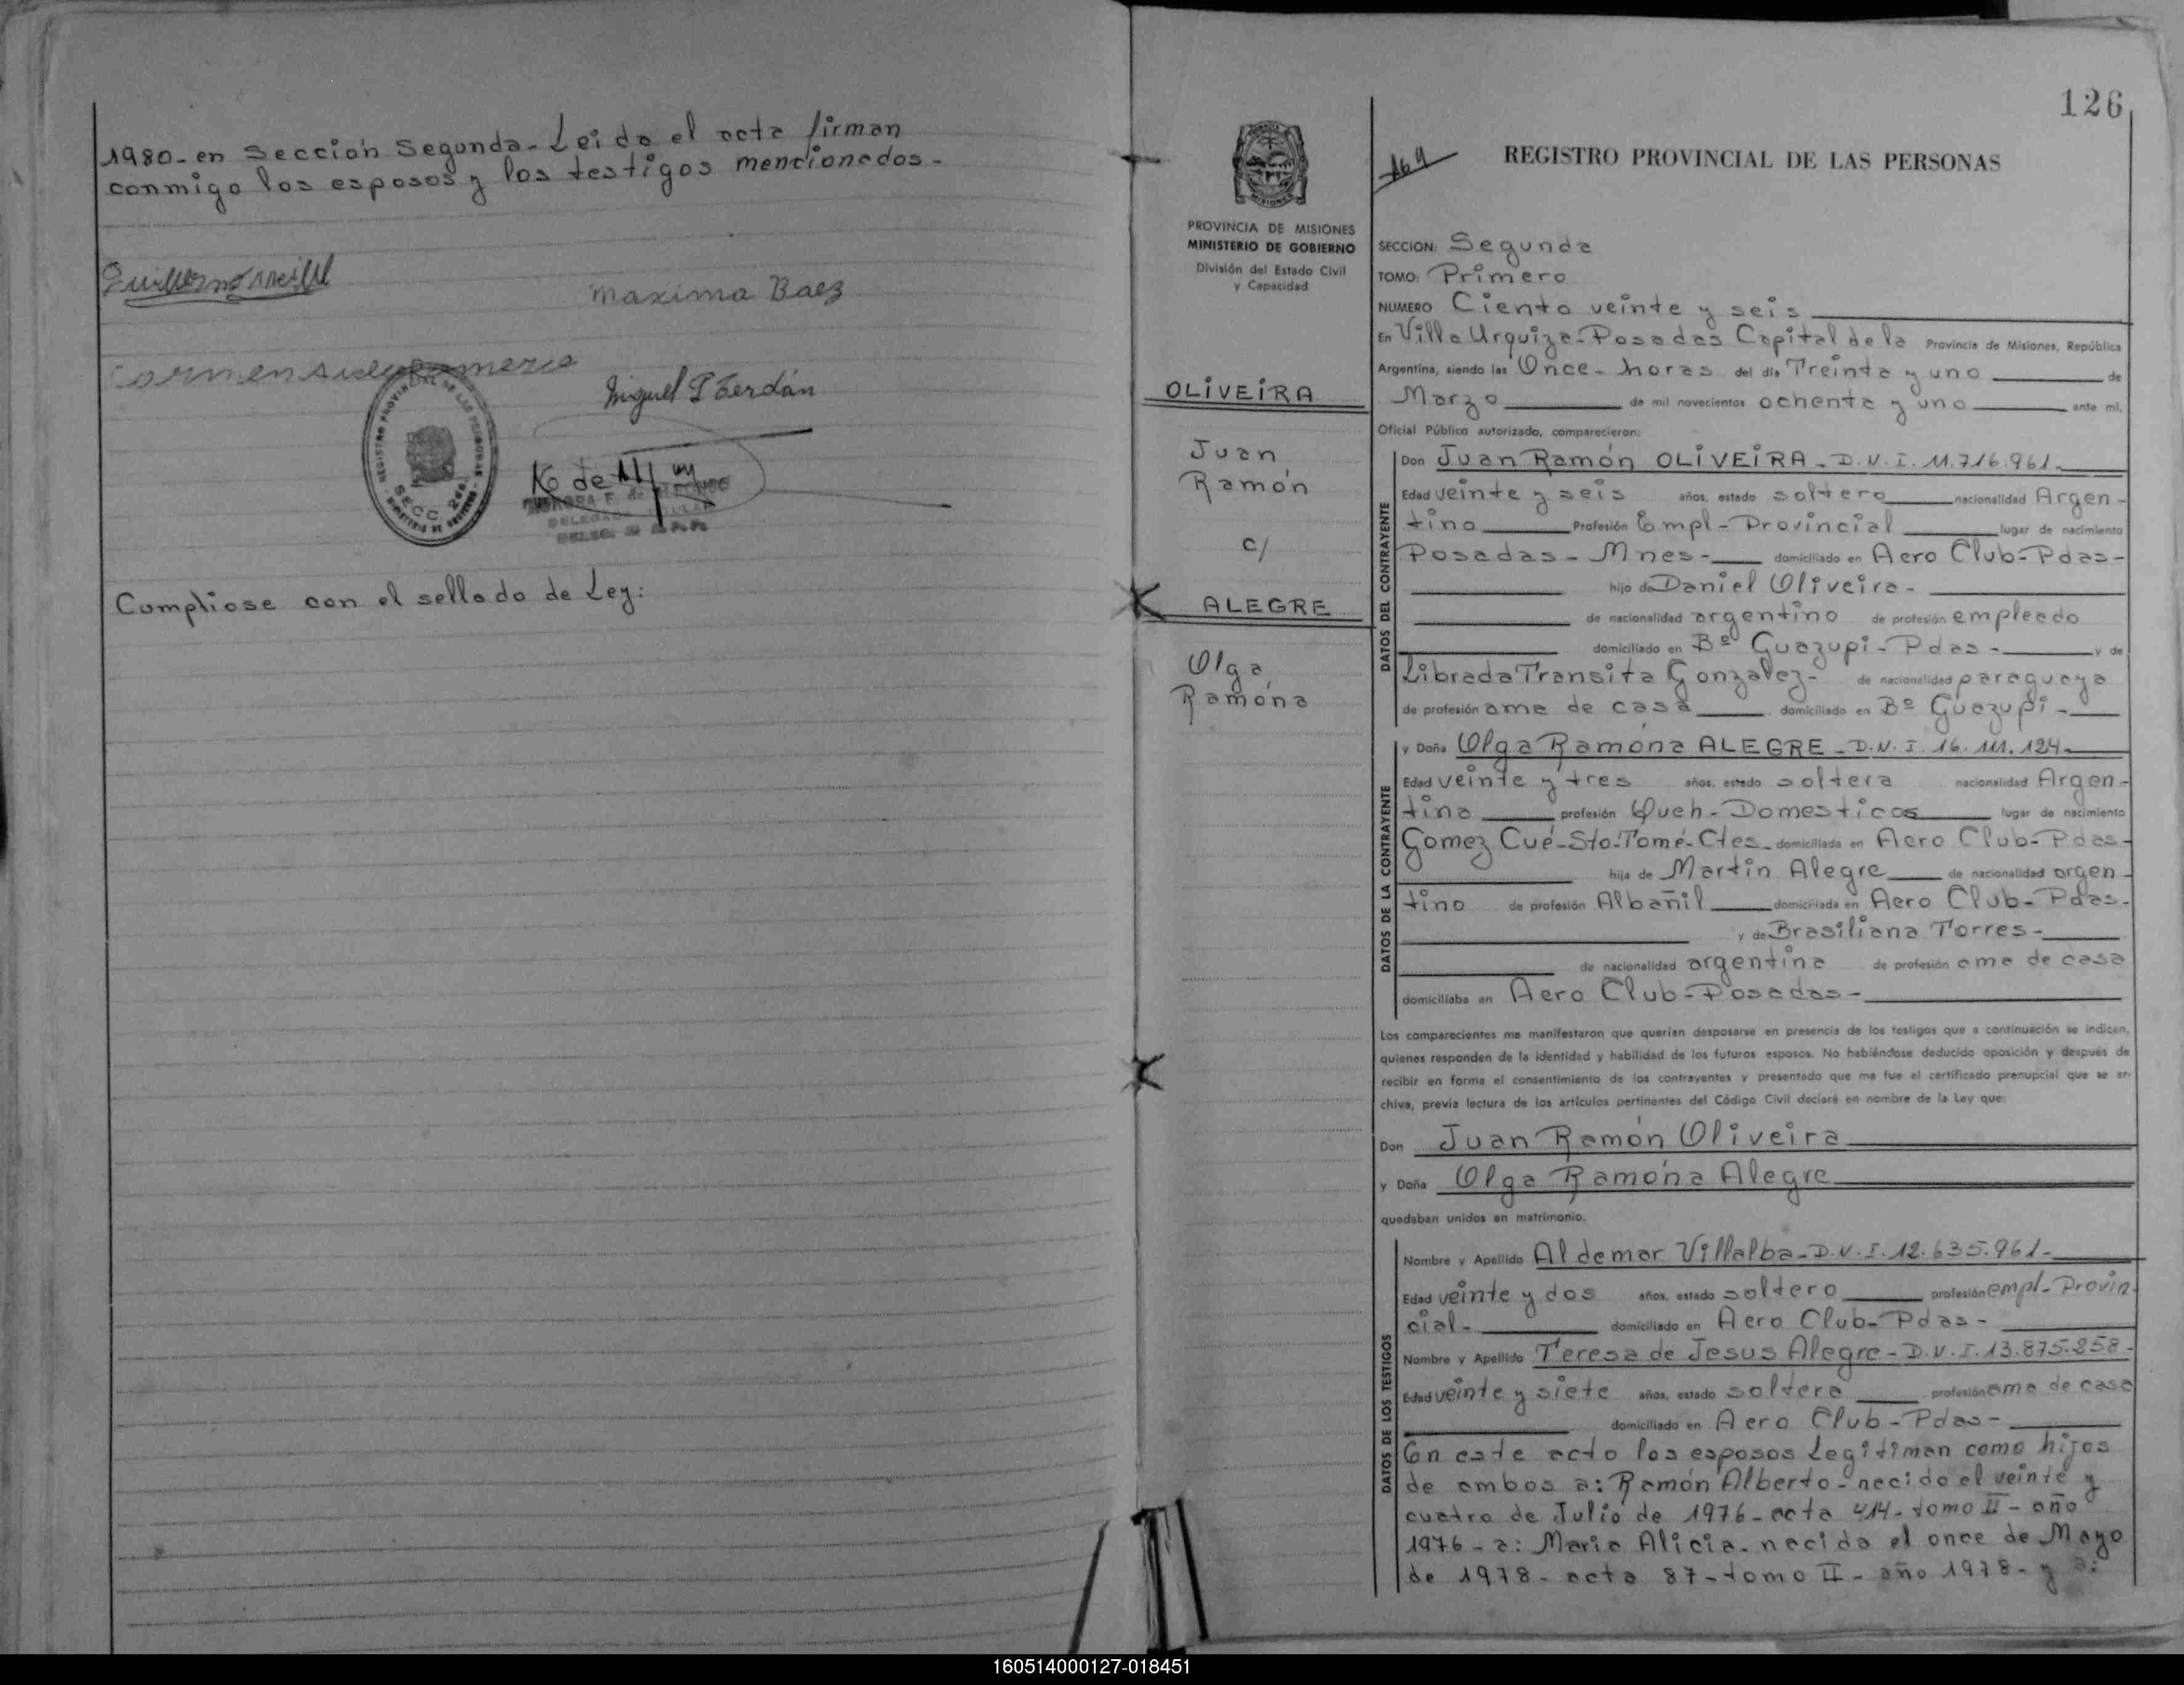 1980-en Sección Segunda-Leida el acta firman
conmigo los esposos y los testigos mencionados-
Maxima Baez
REGISTRO PROVINCIAL DE LAS PERSONAS
SECC. 2da.
Cumpliose con el sellado de Ley:
126
164
REGISTRO PROVINCIAL DE LAS PERSONAS
PROVINCIA DE MISIONES
MINISTERIO DE GOBIERNO
División del Estado Civil
y Capacidad
OLIVEIRA
Juan
Ramón
c/
ALEGRE
Olga
Ramona
SECCION: Segunda
TOMO: Primero
NUMERO Ciento veinte y seis
En Villa Urquiza-Posadas Capital de la Provincia de Misiones, República
Argentina, siendo las Once-horas del día Treinta y uno de
Marzo de mil novecientos ochenta y uno ante mi,
Oficial Público autorizado, comparecieron:
DATOS DEL CONTRAYENTE
Don Juan Ramón OLIVEIRA-D.N.I. 11.716.961-
Edad veinte y seis años, estado soltero nacionalidad Argen-
tino Profesión Empl-Provincial lugar de nacimiento
Posadas-Mnes- domiciliado en Aero Club-Pdas-
hijo de Daniel Oliveira-
de nacionalidad argentino de profesión empleado
domiciliado en Bº Guazupi-Pdas- y de
Librada Transita Gonzalez- de nacionalidad paraguaya
de profesión ama de casa domiciliado en Bº Guazupi-
DATOS DE LA CONTRAYENTE
y Doña Olga Ramona ALEGRE-D.N.I. 16.111.124-
Edad veinte y tres años, estado soltera nacionalidad Argen-
tina profesión Queh-Domesticos lugar de nacimiento
Gomez Cué-Sto.Tomé-Ctes- domiciliada en Aero Club-Pdas-
hija de Martin Alegre de nacionalidad argen-
tino de profesión Albañil domiciliada en Aero Club-Pdas-
y de Brasiliana Torres-
de nacionalidad argentina de profesión ama de casa
domiciliaba en Aero Club-Posadas-
Los comparecientes me manifestaron que querían desposarse en presencia de los testigos que a continuación se indican,
quienes responden de la identidad y habilidad de los futuros esposos. No habiéndose deducido oposición y después de
recibir en forma el consentimiento de los contrayentes y presentado que me fue el certificado prenupcial que se ar-
chiva, previa lectura de los artículos pertinentes del Código Civil declaré en nombre de la Ley que:
Don Juan Ramón Oliveira
y Doña Olga Ramona Alegre
quedaban unidos en matrimonio.
DATOS DE LOS TESTIGOS
Nombre y Apellido Aldemar Villalba-D.N.I. 12.635.961-
Edad veinte y dos años, estado soltero profesión empl-Provin
cial- domiciliado en Aero Club-Pdas-
Nombre y Apellido Teresa de Jesus Alegre-D.N.I. 13.875.858-
Edad veinte y siete años, estado soltera profesión ama de casa
domiciliado en Aero Club-Pdas-
En este acto los esposos Legitiman como hijos
de ambos a: Ramón Alberto-nacido el veinte y
cuatro de Julio de 1976-acta 414-tomo II-año
1976-a: Maria Alicia-nacida el once de Mayo
de 1978-acta 87-tomo II-año 1978-y a:
160514000127-018451